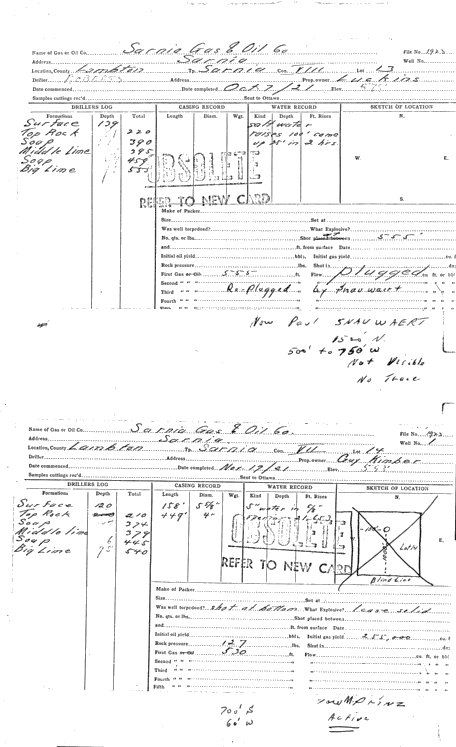 Name of Gas or Oil Co. Sarnia Gas & Oil Co File No. 1923
Address Sarnia Well No.
Location, County Lambton Tp. Sarnia Con. VIII Lot 13
Driller Address Prop. owner Luckins
Date commenced Date completed Oct. 7/21 Elev.
Samples cuttings rec'd Sent to Ottawa
DRILLERS LOG CASING RECORD WATER RECORD SKETCH OF LOCATION
Formations Depth Total Length Diam. Wgt. Kind Depth Ft. Rises N.
Surface 139 salt water
Top Rock 220 raises 100' came
Soap 390 up 25' in 2 hrs.
Middle Lime 395
Soap 459 W. E.
Big Lime 555
OBSOLETE
REFER TO NEW CARD S.
Make of Packer
Size Set at
Was well torpedoed? What Explosive?
No. qts. or lbs. Shot placed between 555'
and ft. from surface Date
Initial oil yield bbls. Initial gas yield cu. f
Rock pressure lbs. Shut in
First Gas or Oil 555 ft. Flow plugged cu. ft. or bbl
Second " " Re-Plugged by Snauwaert
Third " "
Fourth " "
Now Paul SNAUWAERT
1520 N.
500' to 750 W
Not Visible
No Trace
Name of Gas or Oil Co. Sarnia Gas & Oil Co. File No. 1923
Address Sarnia Well No. 1
Location, County Lambton Tp. Sarnia Con. VII Lot 14
Driller Address Prop. owner Guy Kimber
Date commenced Date completed Nov. 17/21 Elev.
Samples cuttings rec'd Sent to Ottawa
DRILLERS LOG CASING RECORD WATER RECORD SKETCH OF LOCATION
Formations Depth Total Length Diam. Wgt. Kind Depth Ft. Rises N.
Surface 120 158' 5⅝" 5" water in ⅝"
Top Rock 210 449' 4"
Soap 374
Middle Lime 379
Soap 6 445 E.
Big Lime 95 540
OBSOLETE
REFER TO NEW CARD
Blind Line
Make of Packer
Size Set at
Was well torpedoed? shot at bottom What Explosive? leave solid
No. qts. or lbs. Shot placed between
and ft. from surface Date
Initial oil yield bbls. Initial gas yield 255,000 cu. f
Rock pressure 127 lbs. Shut in
First Gas or Oil 530 ft. Flow cu. ft. or bbl
Second " "
Third " "
Fourth " "
Fifth " "
700' S
60' W
Active